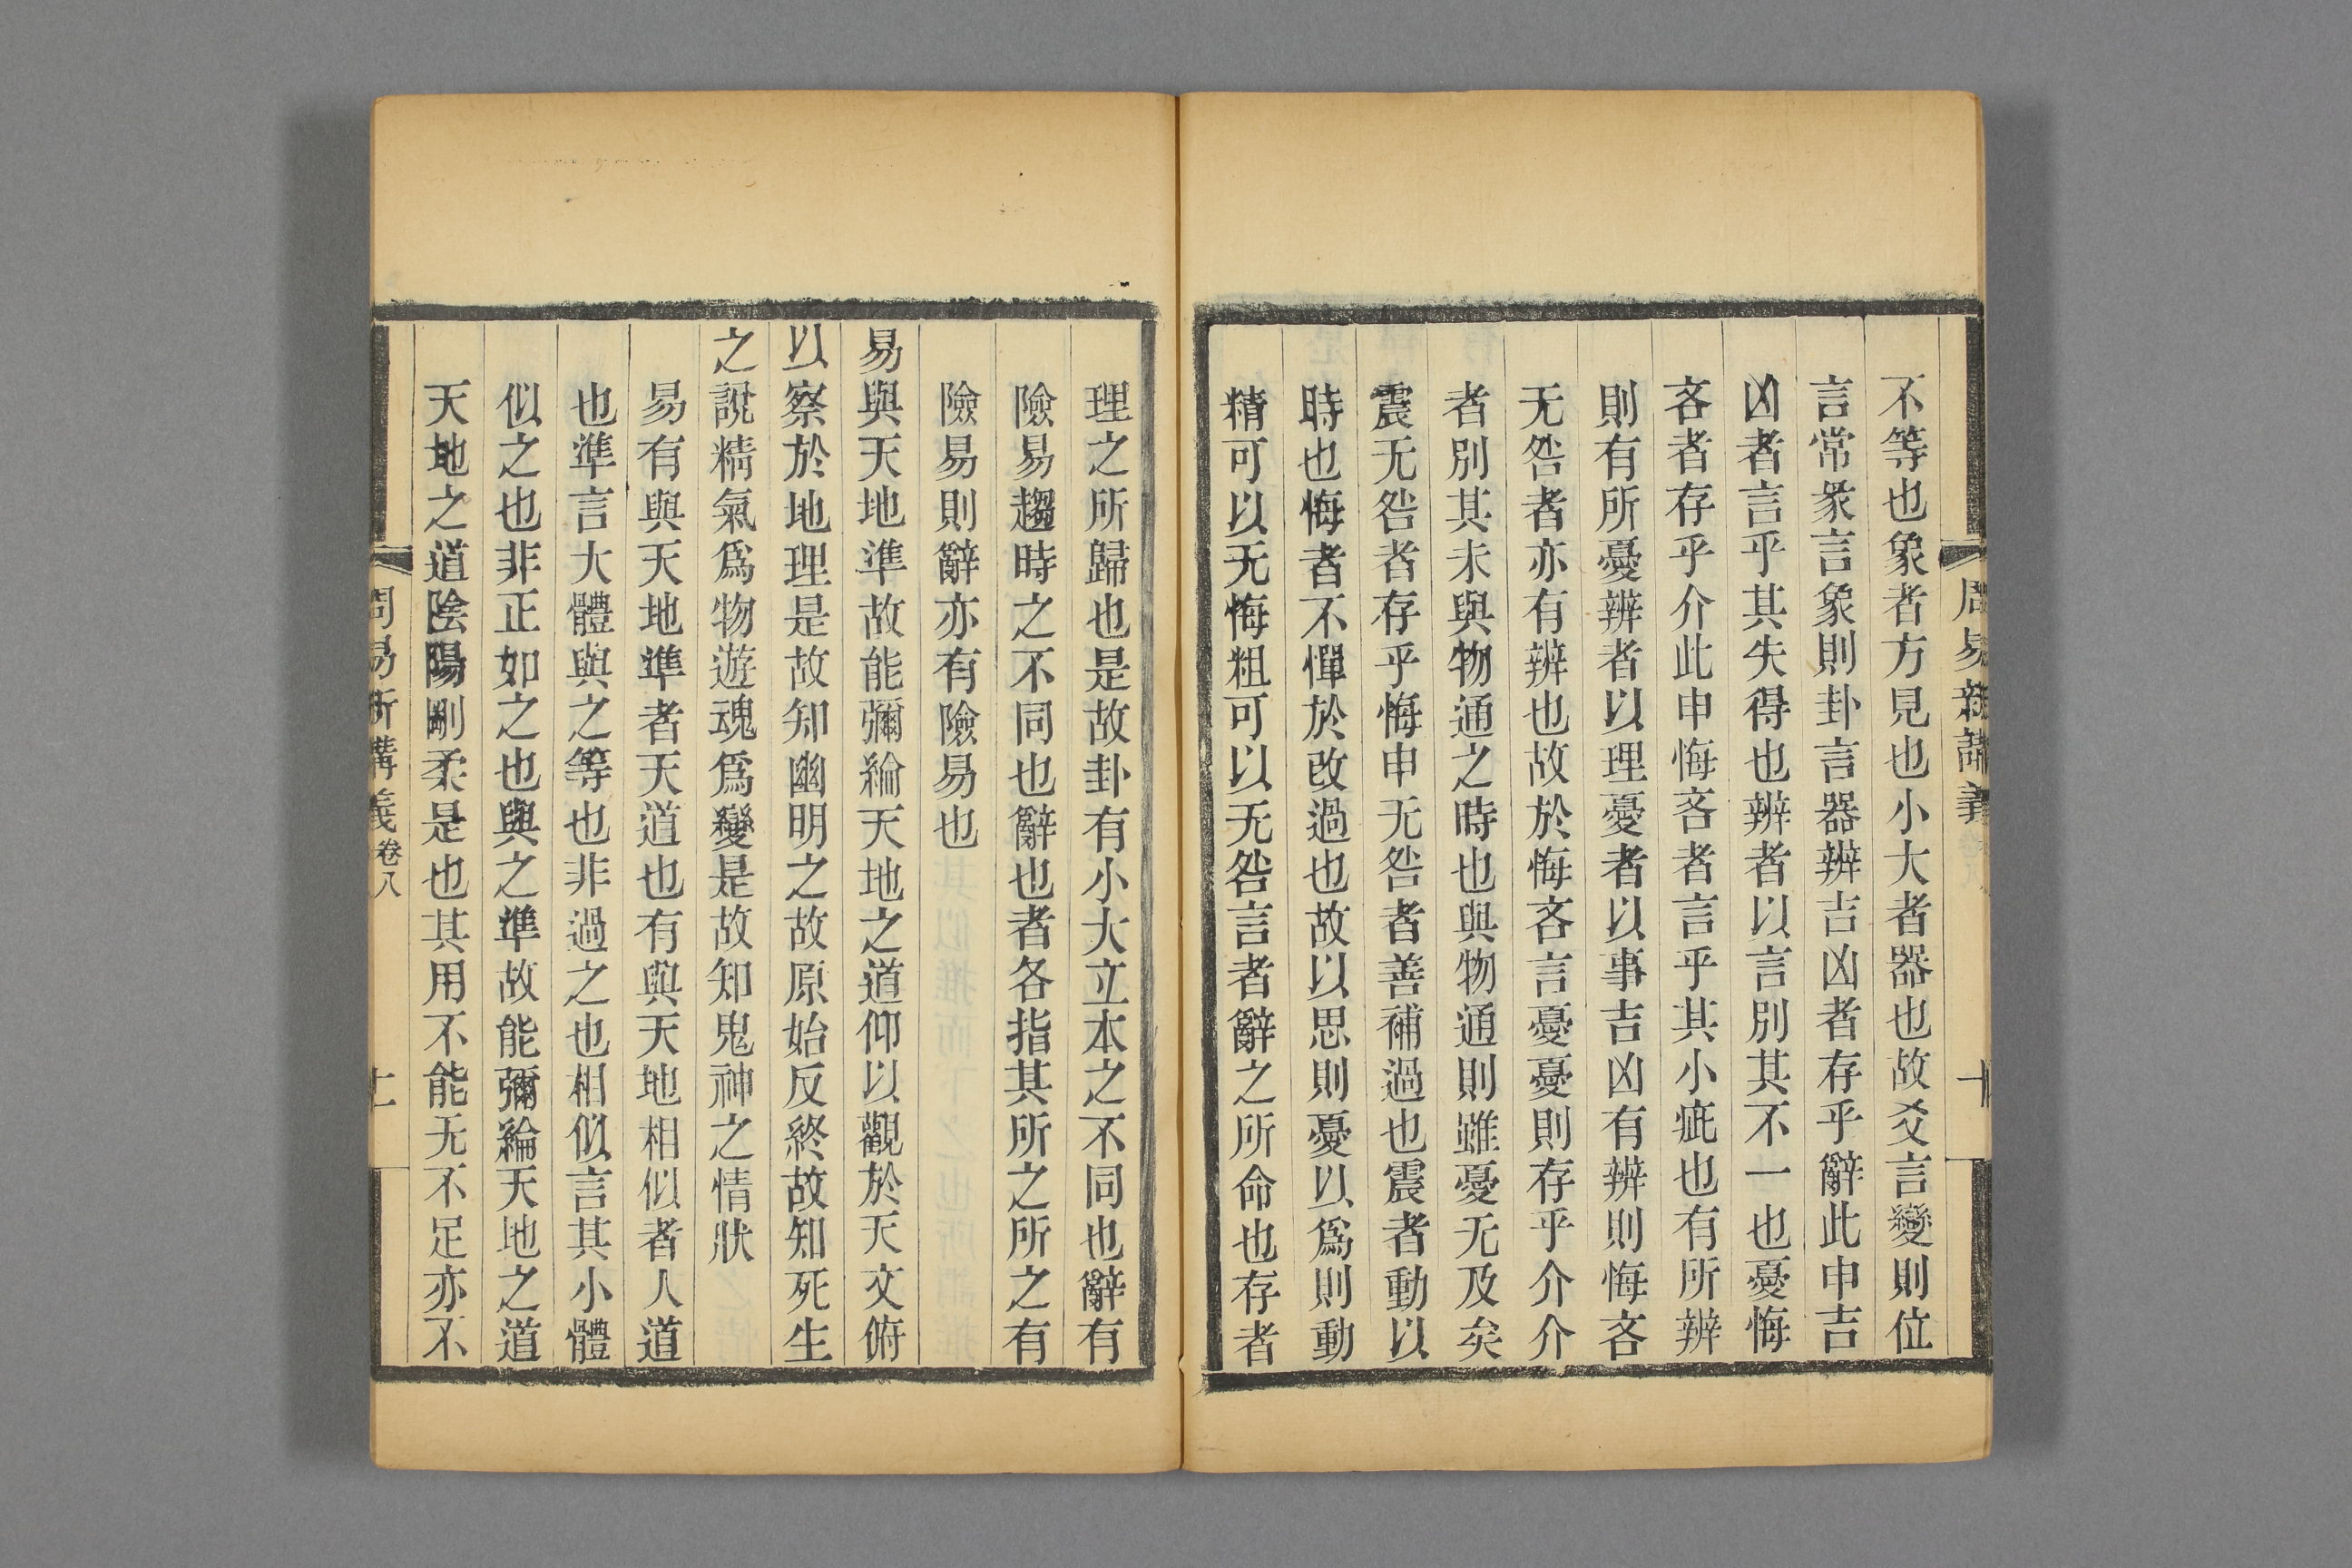 周易新講義
十
不等也象者方見也小大者器也故爻言變則位
言常彖言象則卦言器辨吉凶者存乎辭此申吉
凶者言乎其失得也辨者以言別其不一也憂悔
吝者存乎介此申悔吝者言乎其小疵也有所辨
則有所憂辨者以理憂者以事吉凶有辨則悔吝
无咎者亦有辨也故於悔吝言憂憂則存乎介介
者別其未與物通之時也與物通則雖憂无及矣
震无咎者存乎悔申无咎者善補過也震者動以
時也悔者不憚於改過也故以思則憂以爲則動
精可以无悔粗可以无咎言者辭之所命也存者
理之所歸也是故卦有小大立本之不同也辭有
險易趨時之不同也辭也者各指其所之所之有
險易則辭亦有險易也
易與天地準故能彌綸天地之道仰以觀於天文俯
以察於地理是故知幽明之故原始反終故知死生
之說精氣爲物遊魂爲變是故知鬼神之情狀
易有與天地準者天道也有與天地相似者人道
也準言大體與之等也非過之也相似言其小體
似之也非正如之也與之準故能彌綸天地之道
天地之道陰陽剛柔是也其用不能无不足亦不
周易新講義 卷八
十一